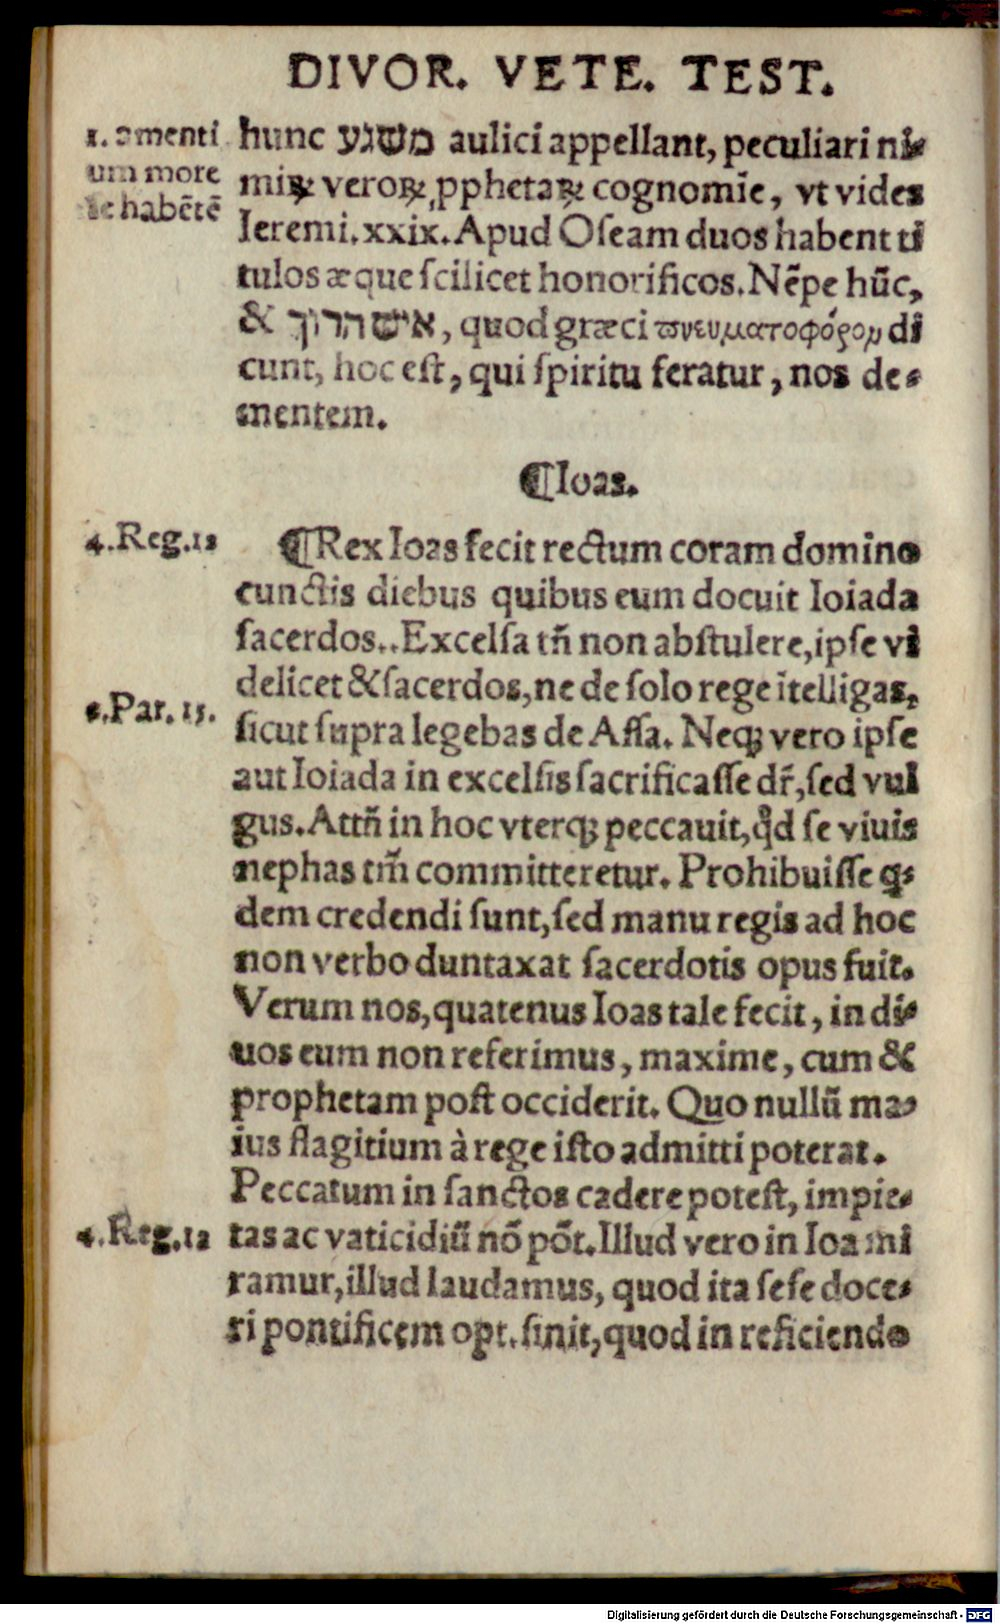 DIVOR. VETE. TEST.
1. amenti
um more
se habẽtẽ
hunc משגע aulici appellant, peculiari ni⸗
miꝝ veroꝝ ꝓphetaꝝ cognomĩe, vt vides
Ieremi.xxix. Apud Oſeam duos habent ti
tulos æque ſcilicet honorificos. Nẽpe hũc,
& איש הרוך, quod græci πνευματοφόρομ di
cunt, hoc eſt, qui ſpiritu feratur, nos de⸗
mentem.
¶Ioas.
4.Reg.12
¶Rex Ioas fecit rectum coram domino
cunctis diebus quibus eum docuit Ioiada
ſacerdos.. Excelſa tñ non abſtulere, ipſe vi
delicet & ſacerdos, ne de ſolo rege ĩtelligas,
2.Par. 15.
ſicut ſupra legebas de Aſſa. Neqꝫ vero ipſe
aut Ioiada in excelſis ſacrificaſſe dr̃, ſed vul
gus. Attñ in hoc vterqꝫ peccauit, qd̃ ſe viuis
nephas tm̃ committeretur. Prohibuiſſe q⸗
dem credendi ſunt, ſed manu regis ad hoc
non verbo duntaxat ſacerdotis opus fuit.
Verum nos, quatenus Ioas tale fecit, in di⸗
uos eum non referimus, maxime, cum &
prophetam poſt occiderit. Quo nullũ ma⸗
ius flagitium à rege iſto admitti poterat.
Peccatum in ſanctos cadere poteſt, impie⸗
4.Reg.12
tas ac vaticidiũ nõ põt. Illud vero in Ioa mi
ramur, illud laudamus, quod ita ſeſe doce⸗
ri pontificem opt. ſinit, quod in reficiendo
Digitalisierung gefördert durch die Deutsche Forschungsgemeinschaft - DFG